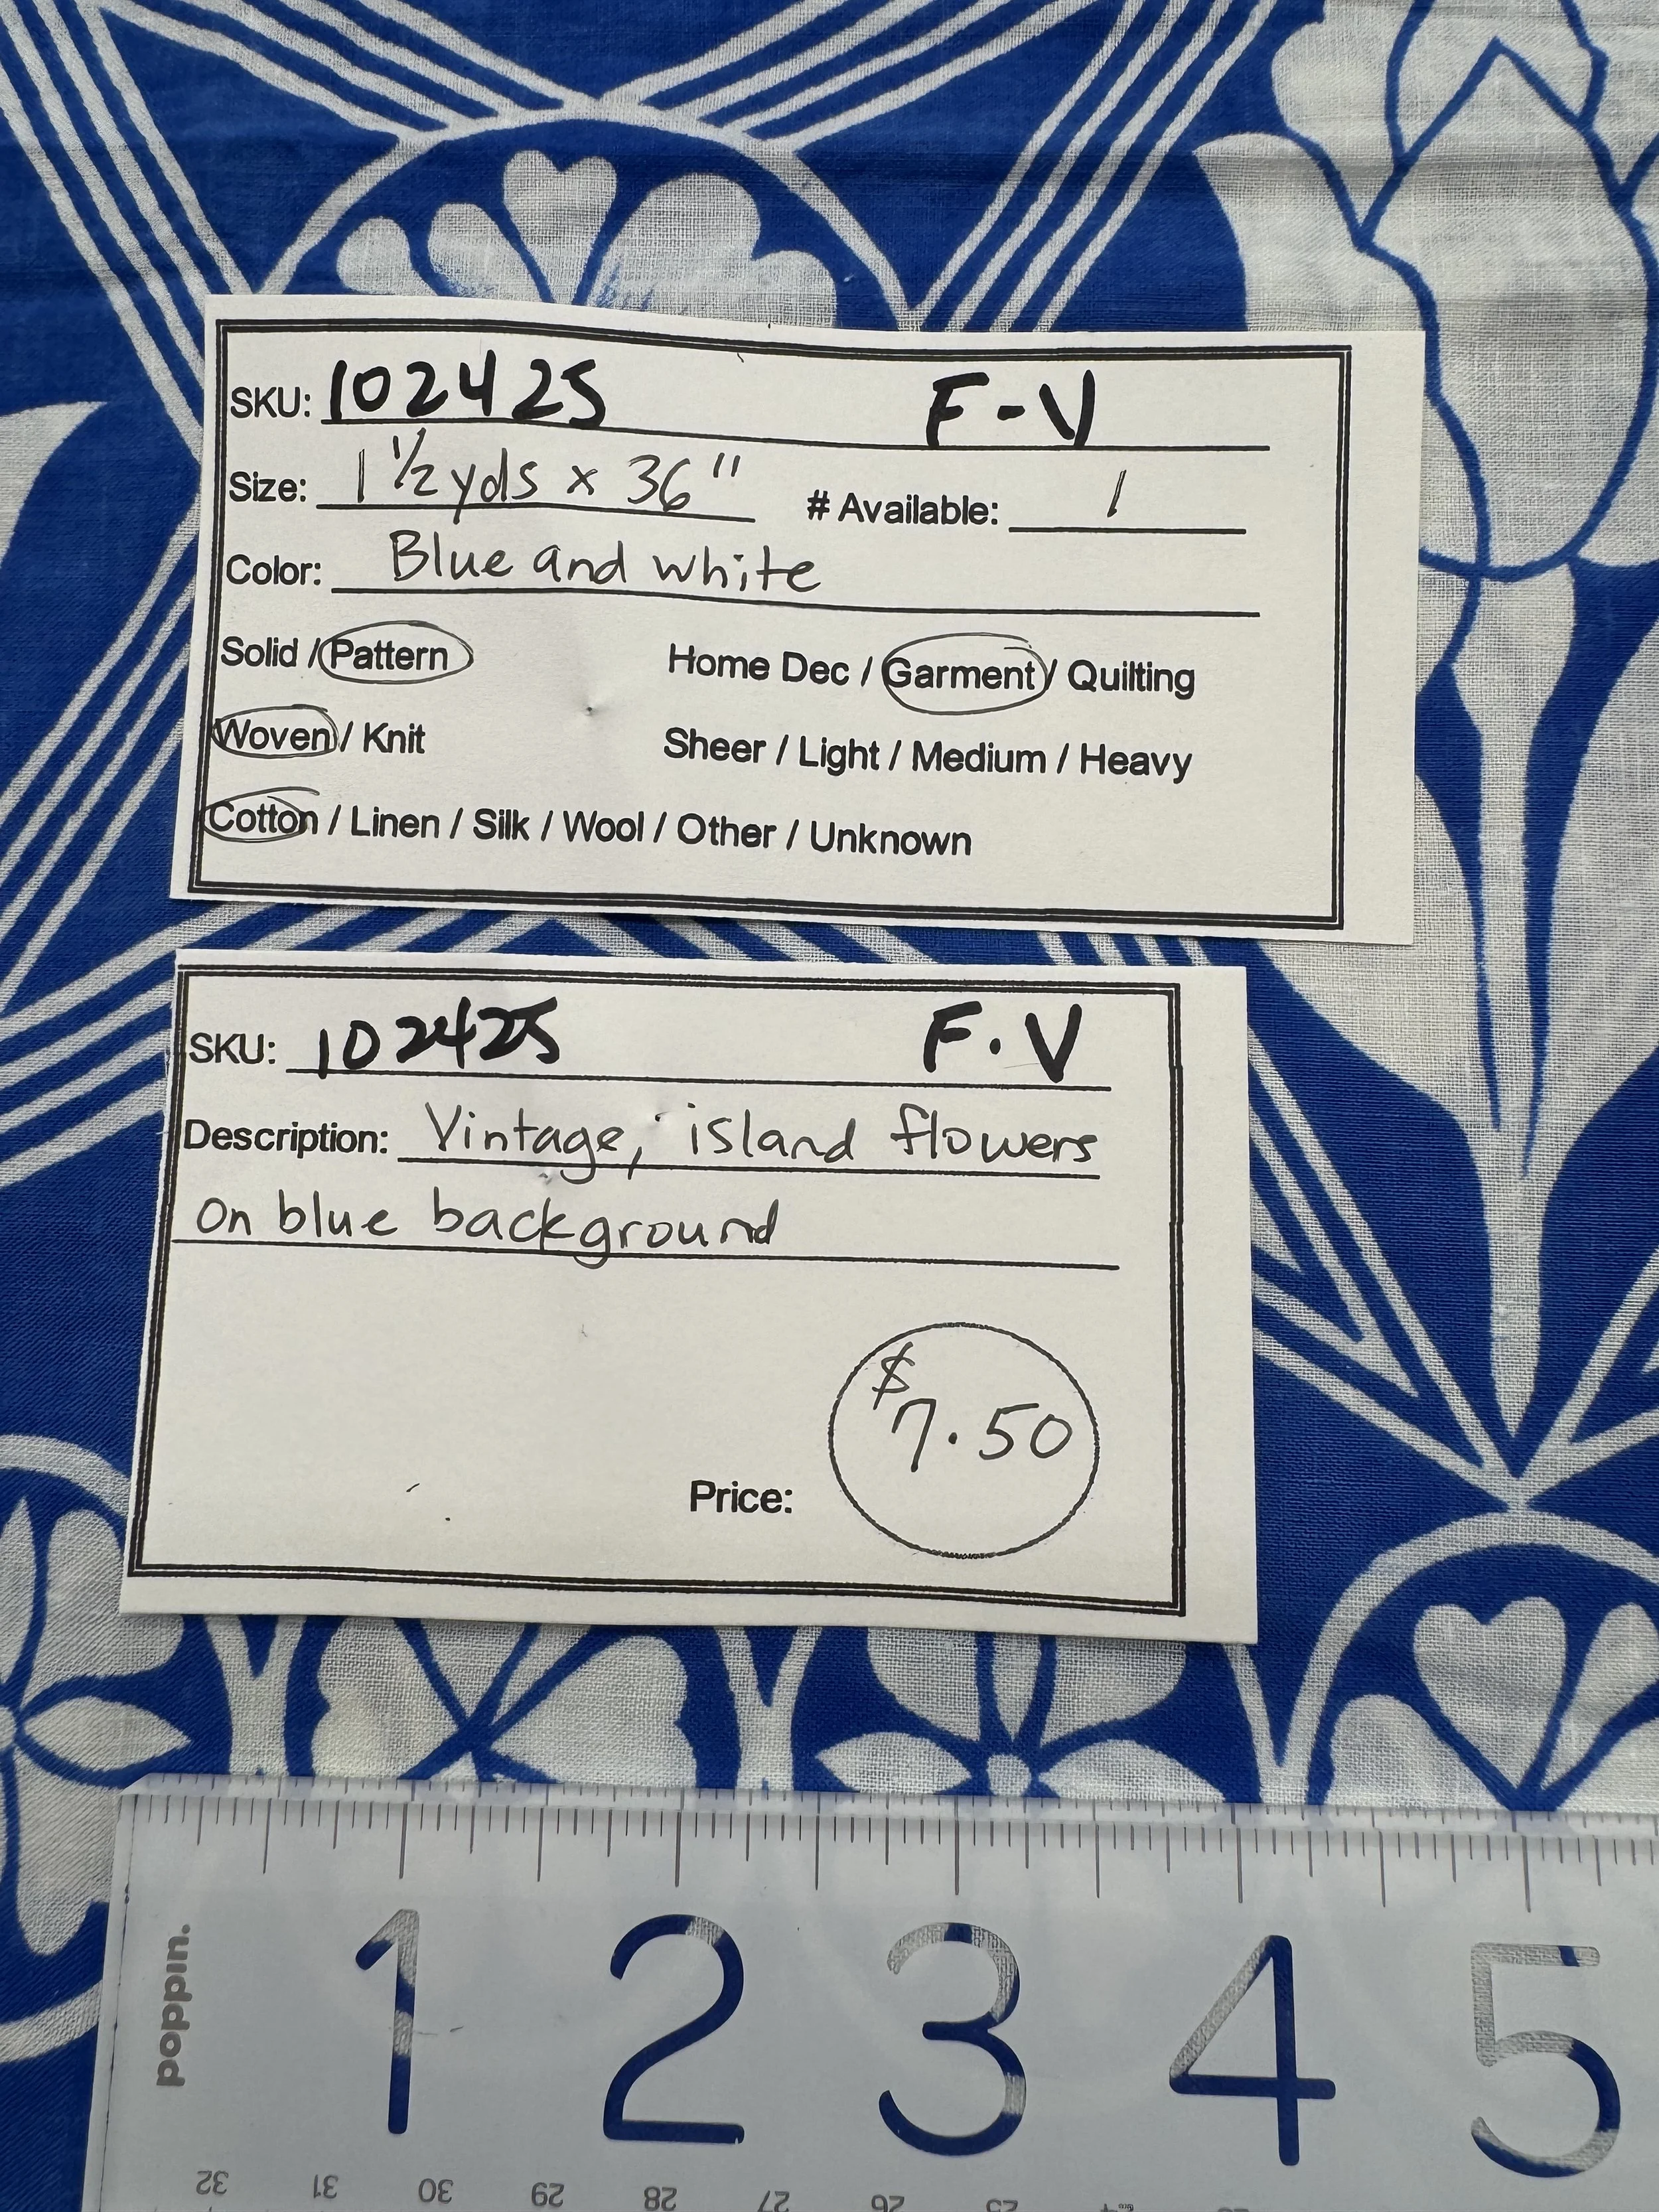 SKU: 102425 F-V
Size: 1 1/2 yds x 36" # Available: 1
Color: Blue and white
Solid / Pattern Home Dec / Garment / Quilting
Woven / Knit Sheer / Light / Medium / Heavy
Cotton / Linen / Silk / Wool / Other / Unknown
SKU: 102425 F.V
Description: Vintage, island flowers
on blue background
$7.50
Price:
poppin.
1 2 3 4 5
32 31 30 29 28 27 26 25